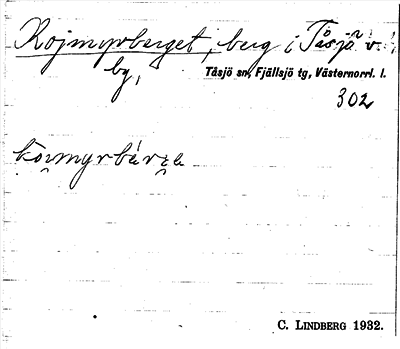 Rojmyrberget, berg i Tåsjö
by,
Tåsjö sn, Fjällsjö tg, Västernorrl. l.
302
C. LINDBERG 1932.